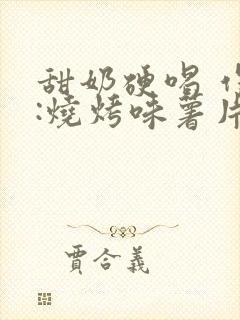 甜奶硬唱
:燒烤味薯片
賈合義